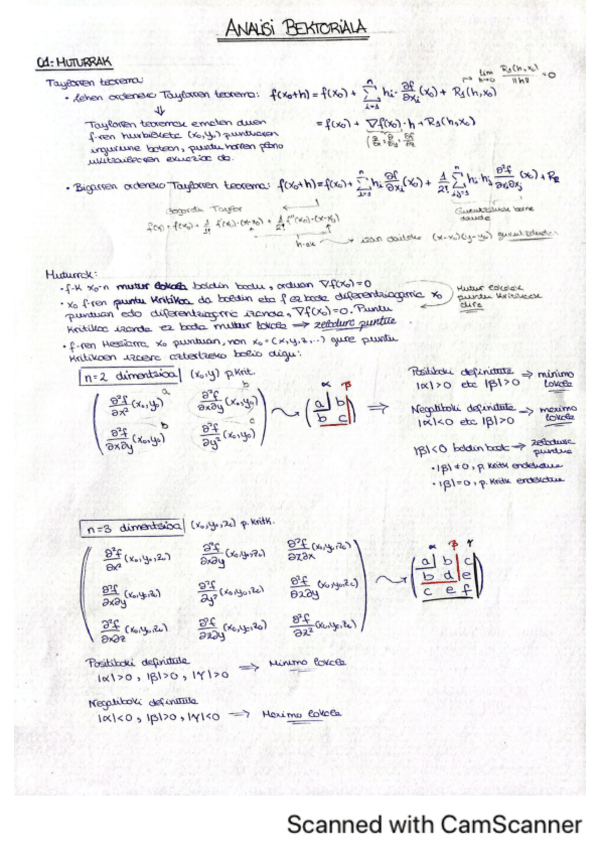 ANALISI BEKTORIALA
01: MUTURRAK
Taylorren teorema:
• Lehen ordeneko Taylorren teorema: f(x₀+h) = f(x₀) + Σⁿᵢ₌₁ hᵢ · ∂f/∂xᵢ (x₀) + R₁(h,x₀) → lim h→0 R₁(h,x₀)/||h|| = 0
⇓
Taylorren teoremak ematen duen
= f(x₀) + ∇f(x₀)·h + R₁(h,x₀)
f-ren hurbilketa (x₀,y₀) puntuaren
ingurune batean, puntu horren plano
ukitzailearen ekuazioa da.
• Bigarren ordeneko Taylorren teorema: f(x₀+h) = f(x₀) + Σⁿᵢ₌₁ hᵢ ∂f/∂xᵢ (x₀) + 1/2! Σⁿᵢ,ⱼ₌₁ hᵢ hⱼ ∂²f/∂xᵢ∂xⱼ (x₀) + R₂
Gogoratu Taylor
f(x) = f(x₀) + 1/1! f'(x₀)·(x-x₀) + 1/2! f''(x₀)·(x-x₀)
daude
h-ak → izan daiteke (x-x₀)(y-y₀)
Muturrak:
• f-k x₀-n mutur lokala baldin badu, orduan ∇f(x₀)=0
Mutur lokalak
puntu kritikoak
dira
• x₀ f-ren puntu kritikoa da baldin eta f ez bada diferentziagarria x₀
puntuan edo diferentziagarria izanda, ∇f(x₀)=0. Puntu
kritikoa izanda ez bada mutur lokala → zeladura puntua
• f-ren Hessiarra, x₀ puntuan, non x₀=(x,y,z,...) gure puntu
kritikoen izaera aztertzeko balio digu:
n=2 dimentsioa (x₀,y₀) p.krit.
∂²f/∂x² (x₀,y₀) a ∂²f/∂x∂y (x₀,y₀) b
∂²f/∂x∂y (x₀,y₀) b ∂²f/∂y² (x₀,y₀) c
α β
a b
b c
⇒
Positiboki definitute ⇒ minimo
|α|>0 eta |β|>0 lokala
Negatiboki definitute ⇒ maximo
|α|<0 eta |β|>0 lokala
|β|<0 baldin bada → zeladura
puntua
• |β|≠0, p. kritk endekatua
• |β|=0, p. kritk endekatua
n=3 dimentsioa (x₀,y₀,z₀) p.kritk.
∂²f/∂x² (x₀,y₀,z₀) ∂²f/∂x∂y (x₀,y₀,z₀) ∂²f/∂z∂x (x₀,y₀,z₀)
∂²f/∂x∂y (x₀,y₀,z₀) ∂²f/∂y² (x₀,y₀,z₀) ∂²f/∂z∂y (x₀,y₀,z₀)
∂²f/∂x∂z (x₀,y₀,z₀) ∂²f/∂z∂y (x₀,y₀,z₀) ∂²f/∂z² (x₀,y₀,z₀)
α β γ
a b c
b d e
c e f
Positiboki definitute
|α|>0, |β|>0, |γ|>0 ⇒ Minimo lokala
Negatiboki definitute
|α|<0, |β|>0, |γ|<0 ⇒ Maximo lokala
Scanned with CamScanner